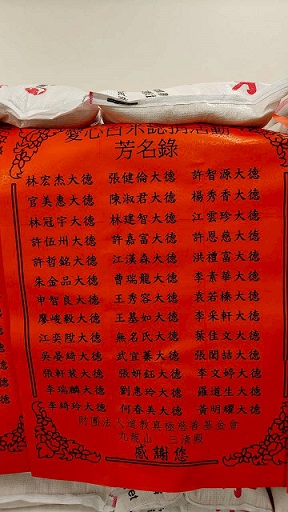 愛心白米認捐活動
芳名錄
林宏杰大德 張健倫大德 許智源大德
官美惠大德 陳淑君大德 楊秀香大德
林冠宇大德 林建智大德 江雲珍大德
許伍州大德 許嘉富大德 許恩慈大德
許哲銘大德 江漢森大德 洪禮富大德
朱金品大德 曹瑞龍大德 李素華大德
申智良大德 王秀容大德 袁若榛大德
摩峻毅大德 王基如大德 李采軒大德
江奕陞大德 無名氏大德 葉佳文大德
吳晏綺大德 武宜蓁大德 張閔喆大德
張軒裴大德 張妍鈺大德 李文婷大德
李瑞麟大德 劉惠玲大德 羅道生大德
李綺玲大德 何春美大德 黃明耀大德
財團法人道教與極慈善基金會
九龍山 三清殿
感謝您